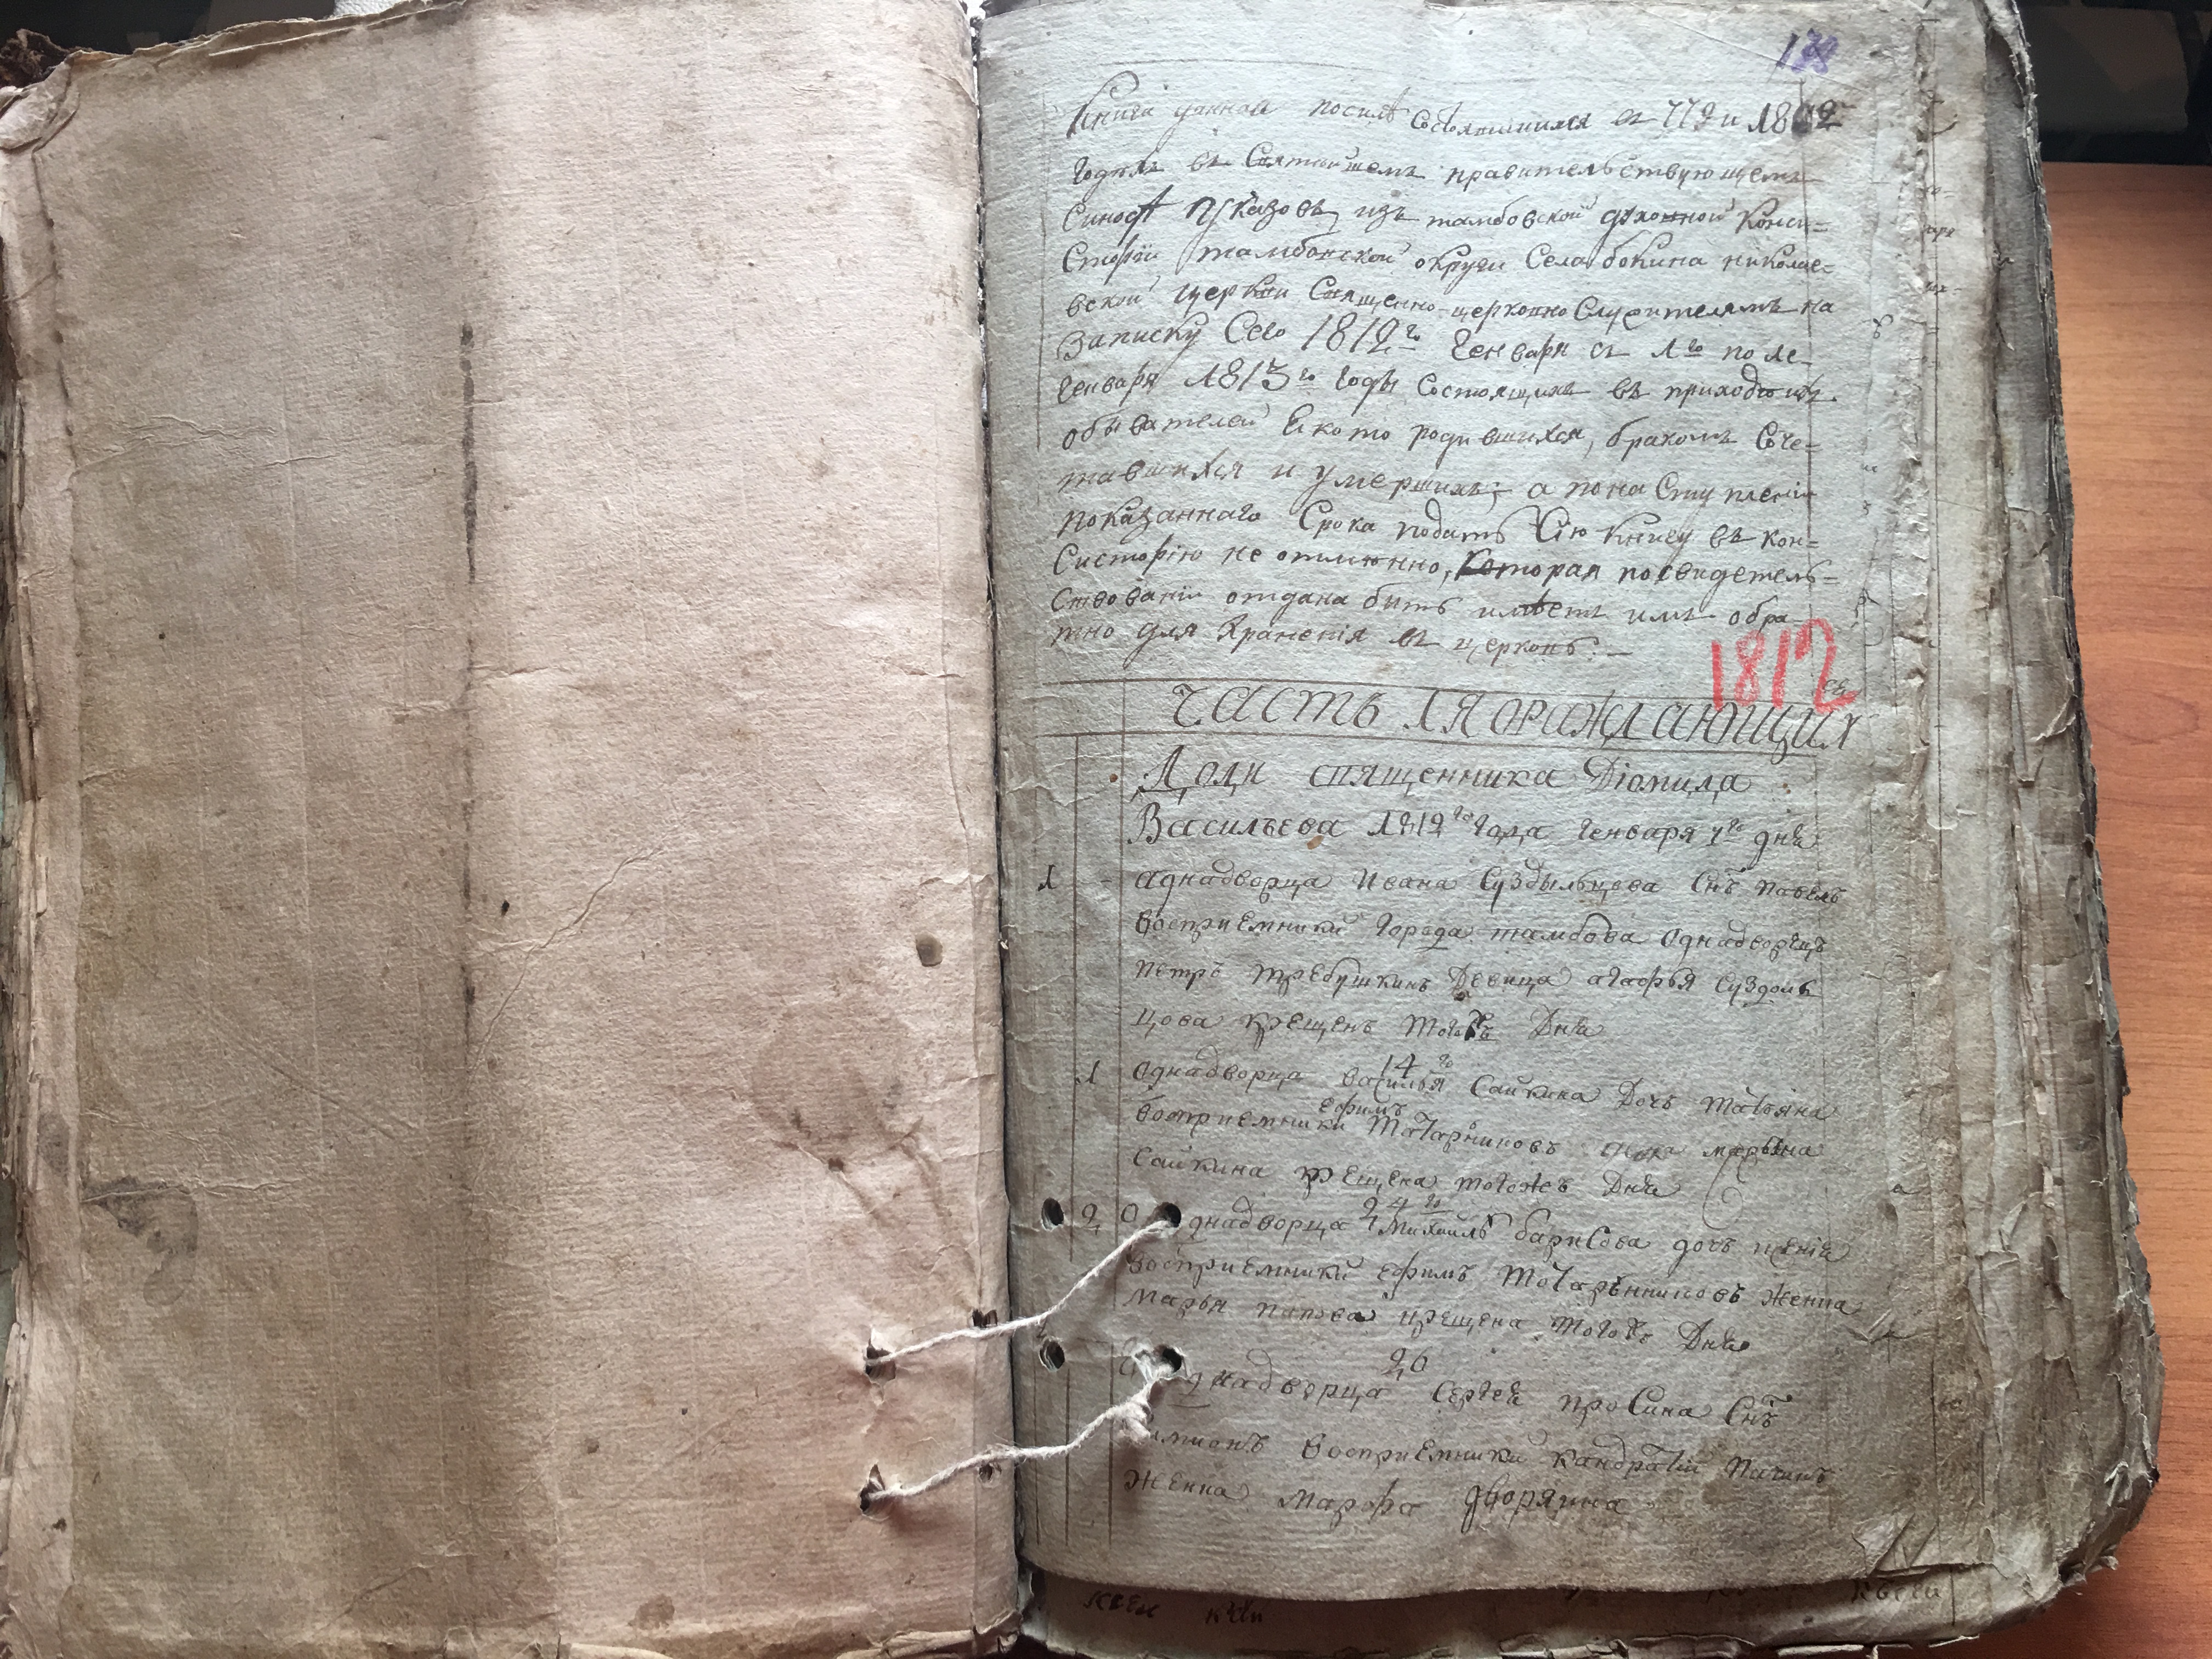 138
Книга данная посилѣ состоявшихся въ 779 и 1802
годехъ въ Святейшемъ правительствующемъ
Синодѣ Указовъ, изъ тамбовской духовной Конси=
Сторіи тамбовской округи Села бокина николае=
вской церкви Священно-церковно Служителямъ на
Записку Сего 1812го Генваря съ 1го по 1е
Генваря 1813го годы состоящихъ въ приходѣ ихъ
обывателей Екото родившихся, бракомъ Соче=
тавшихся и умершихъ; а понаступленіи
показаннаго Срока подать Сію Книгу въ кон=
Систорію не отменно, Которая посвидетель=
Ствованіи отдана быть имѣетъ имъ обра
тно для Храненія въ церковь:
1812
Часть 1я ораждающихся
Доли священника Діомида
Васильева 1812го Года Генваря 7го дня
1 - аднадворца Ивана Суздыльцова Снъ Павелъ
восприемники города тамбова Однадворецъ
Петръ Требушкинъ Девица агафья Суздоль
цова крещенъ тогожъ Дня
14го
1 Однадворца василья Сайкина Дочь татьяна
ефимъ
восприемники Татаринновъ марьяна
Сайкина крещена тогожъ Дня
24го
2 Однадворца Михаилъ барисова дочь
восприемники ефимъ Тотаринновъ Женка
марья папова крещена тогожъ Дня
26
Однадворца Сергея проСина Снъ
восприемники кандратій Пачинъ
Женка Марфа дворяина